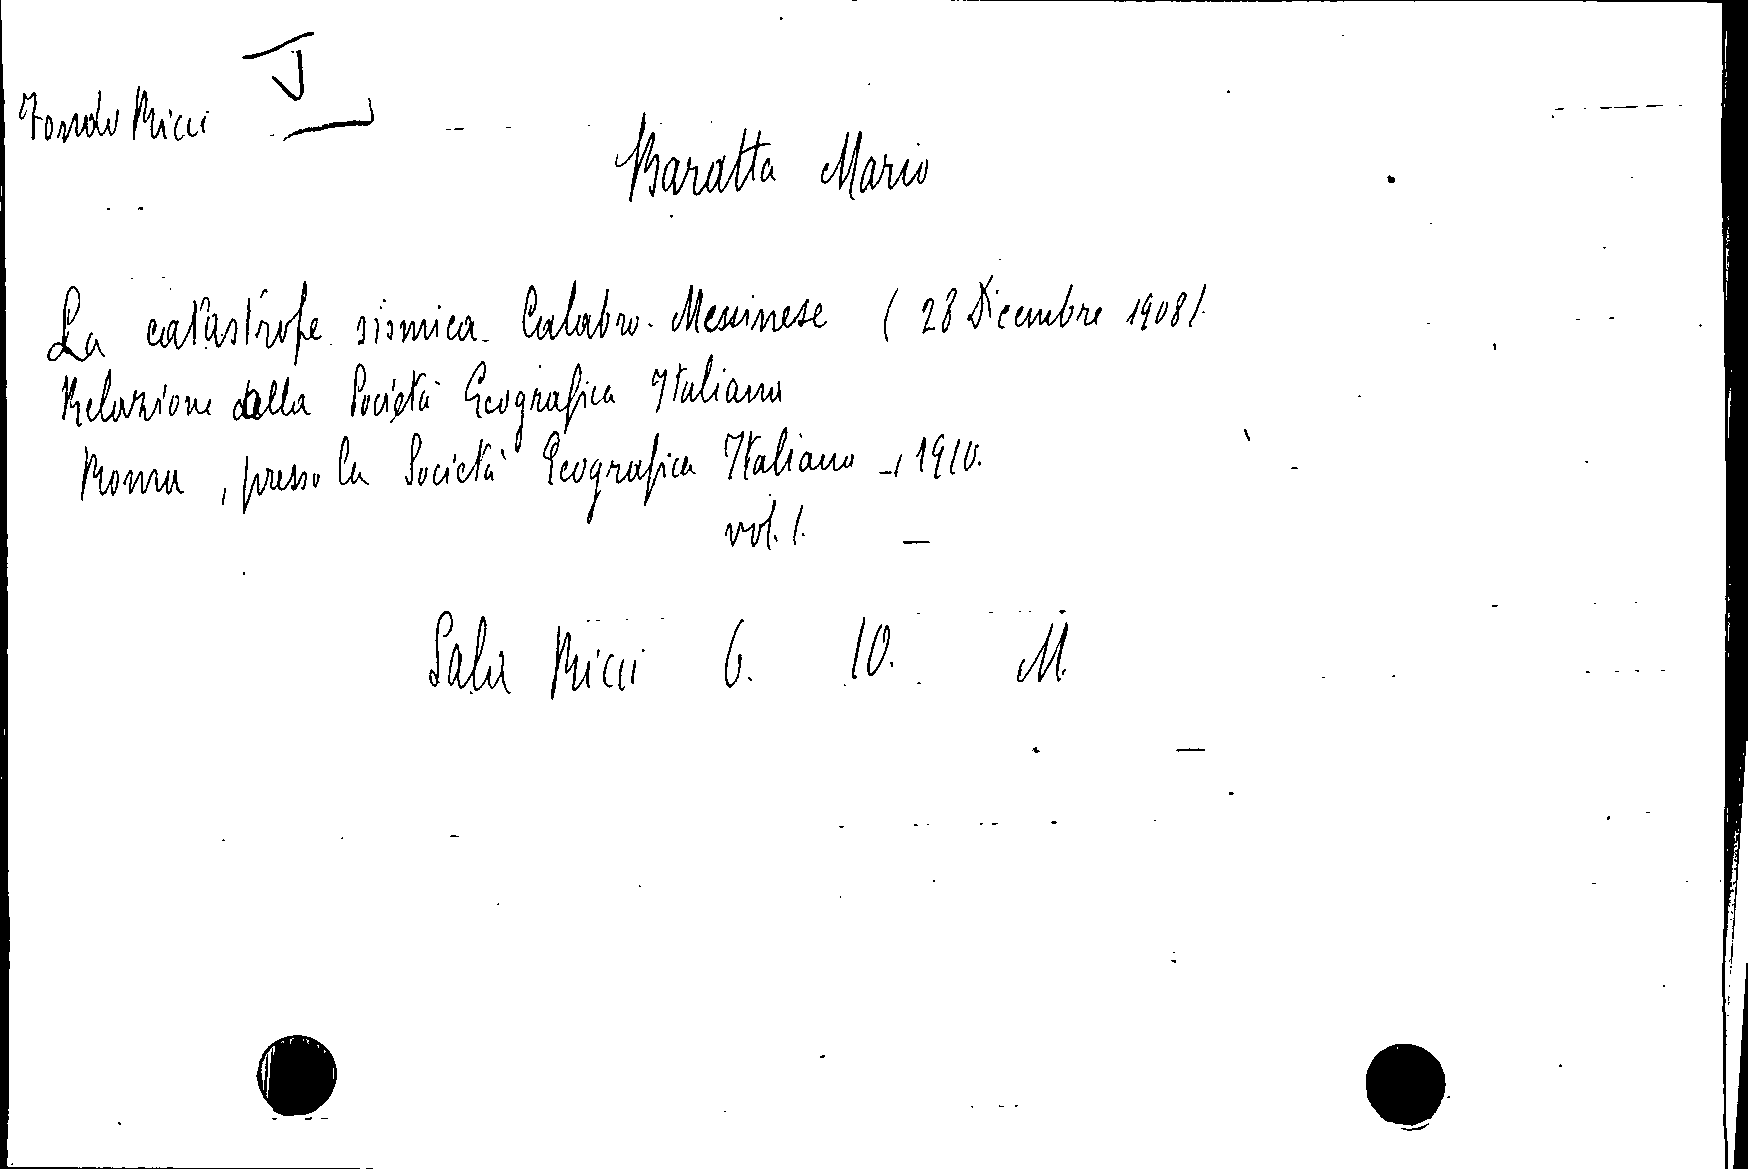 Fondo Ricci
Baratta Mario
La catastrofe sismica Calabro-Messinese (28 Dicembre 1908).
Relazione alla Società Geografica Italiana
Roma, presso la Società Geografica Italiana, 1910.
vol. 1.
Sala Ricci 6. 10. M.